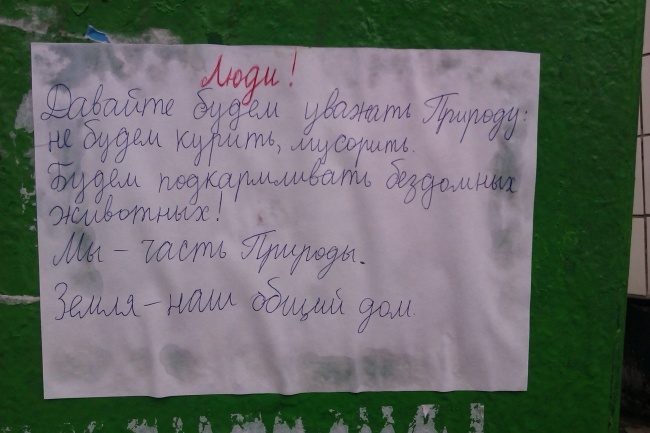 Люди!
Давайте будем уважать Природу:
не будем курить, мусорить.
Будем подкармливать бездомных
животных!
Мы – часть Природы.
Земля – наш общий дом.